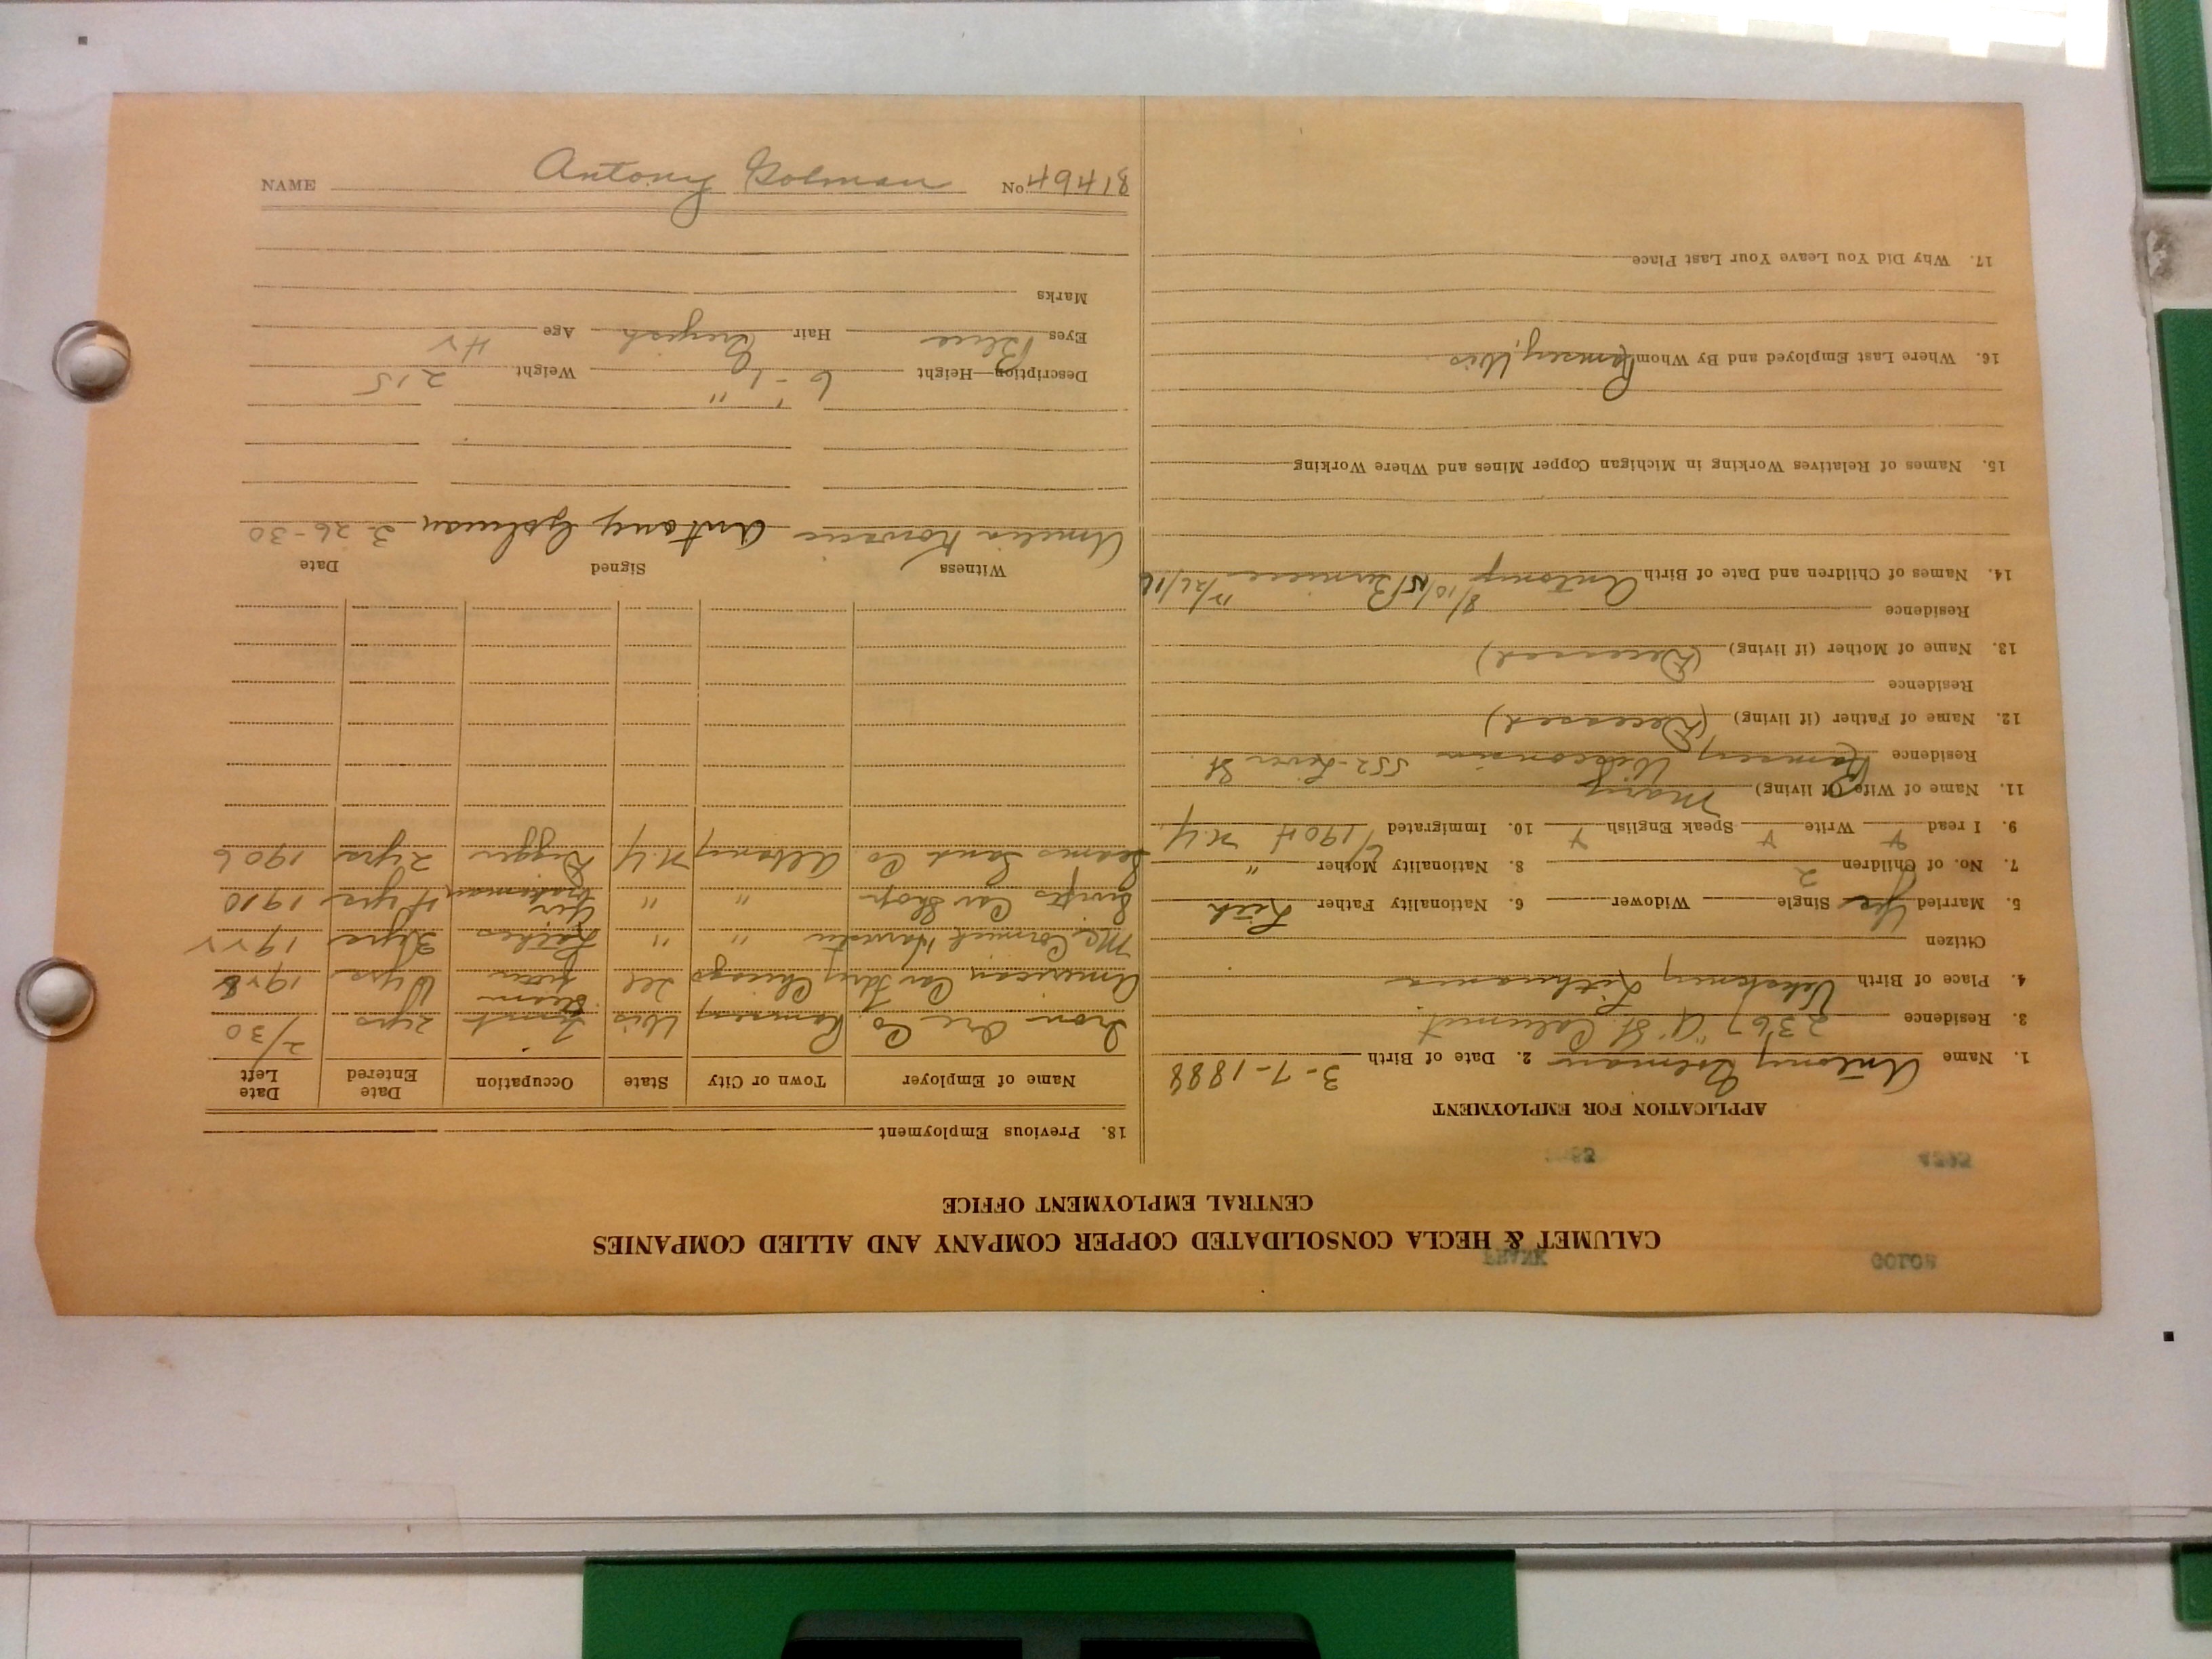 CALUMET & HECLA CONSOLIDATED COPPER COMPANY AND ALLIED COMPANIES
CENTRAL EMPLOYMENT OFFICE
APPLICATION FOR EMPLOYMENT
1. Name Antony Golman 2. Date of Birth 3-7-1888
3. Residence 2367 "A" St. Calumet
4. Place of Birth Lithuania
Citizen
5. Married Yes Single Widower 6. Nationality Father Lith
7. No. of Children 2 8. Nationality Mother "
9. I read Write Speak English 10. Immigrated 1904 N.Y.
11. Name of Wife (if living) Mary
Residence Ramsey Wisconsin 552 - River St.
12. Name of Father (if living) (Deceased)
Residence
13. Name of Mother (if living) (Deceased)
Residence
14. Names of Children and Date of Birth Antony 8/10/15 Bernice
15. Names of Relatives Working in Michigan Copper Mines and Where Working
16. Where Last Employed and By Whom Ramsey, Wis
17. Why Did You Leave Your Last Place
18. Previous Employment
Name of Employer Town or City State Occupation Date Entered Date Left
Iron Ore Co. Ramsey Wis 2 yrs 2/30
American Car Chicago Ill 1928
McCormick Harvester " " 3 yrs 1922
Car Shop " " 4 yrs 1910
Sand Co. Albany N.Y. Digger 2 yrs 1906
Witness Signed Date
Amelia Antony Golman 3-26-30
Description—Height 6'-1" Weight 215
Eyes Blue Hair Greyish Age 42
Marks
NAME Antony Golman No. 49418